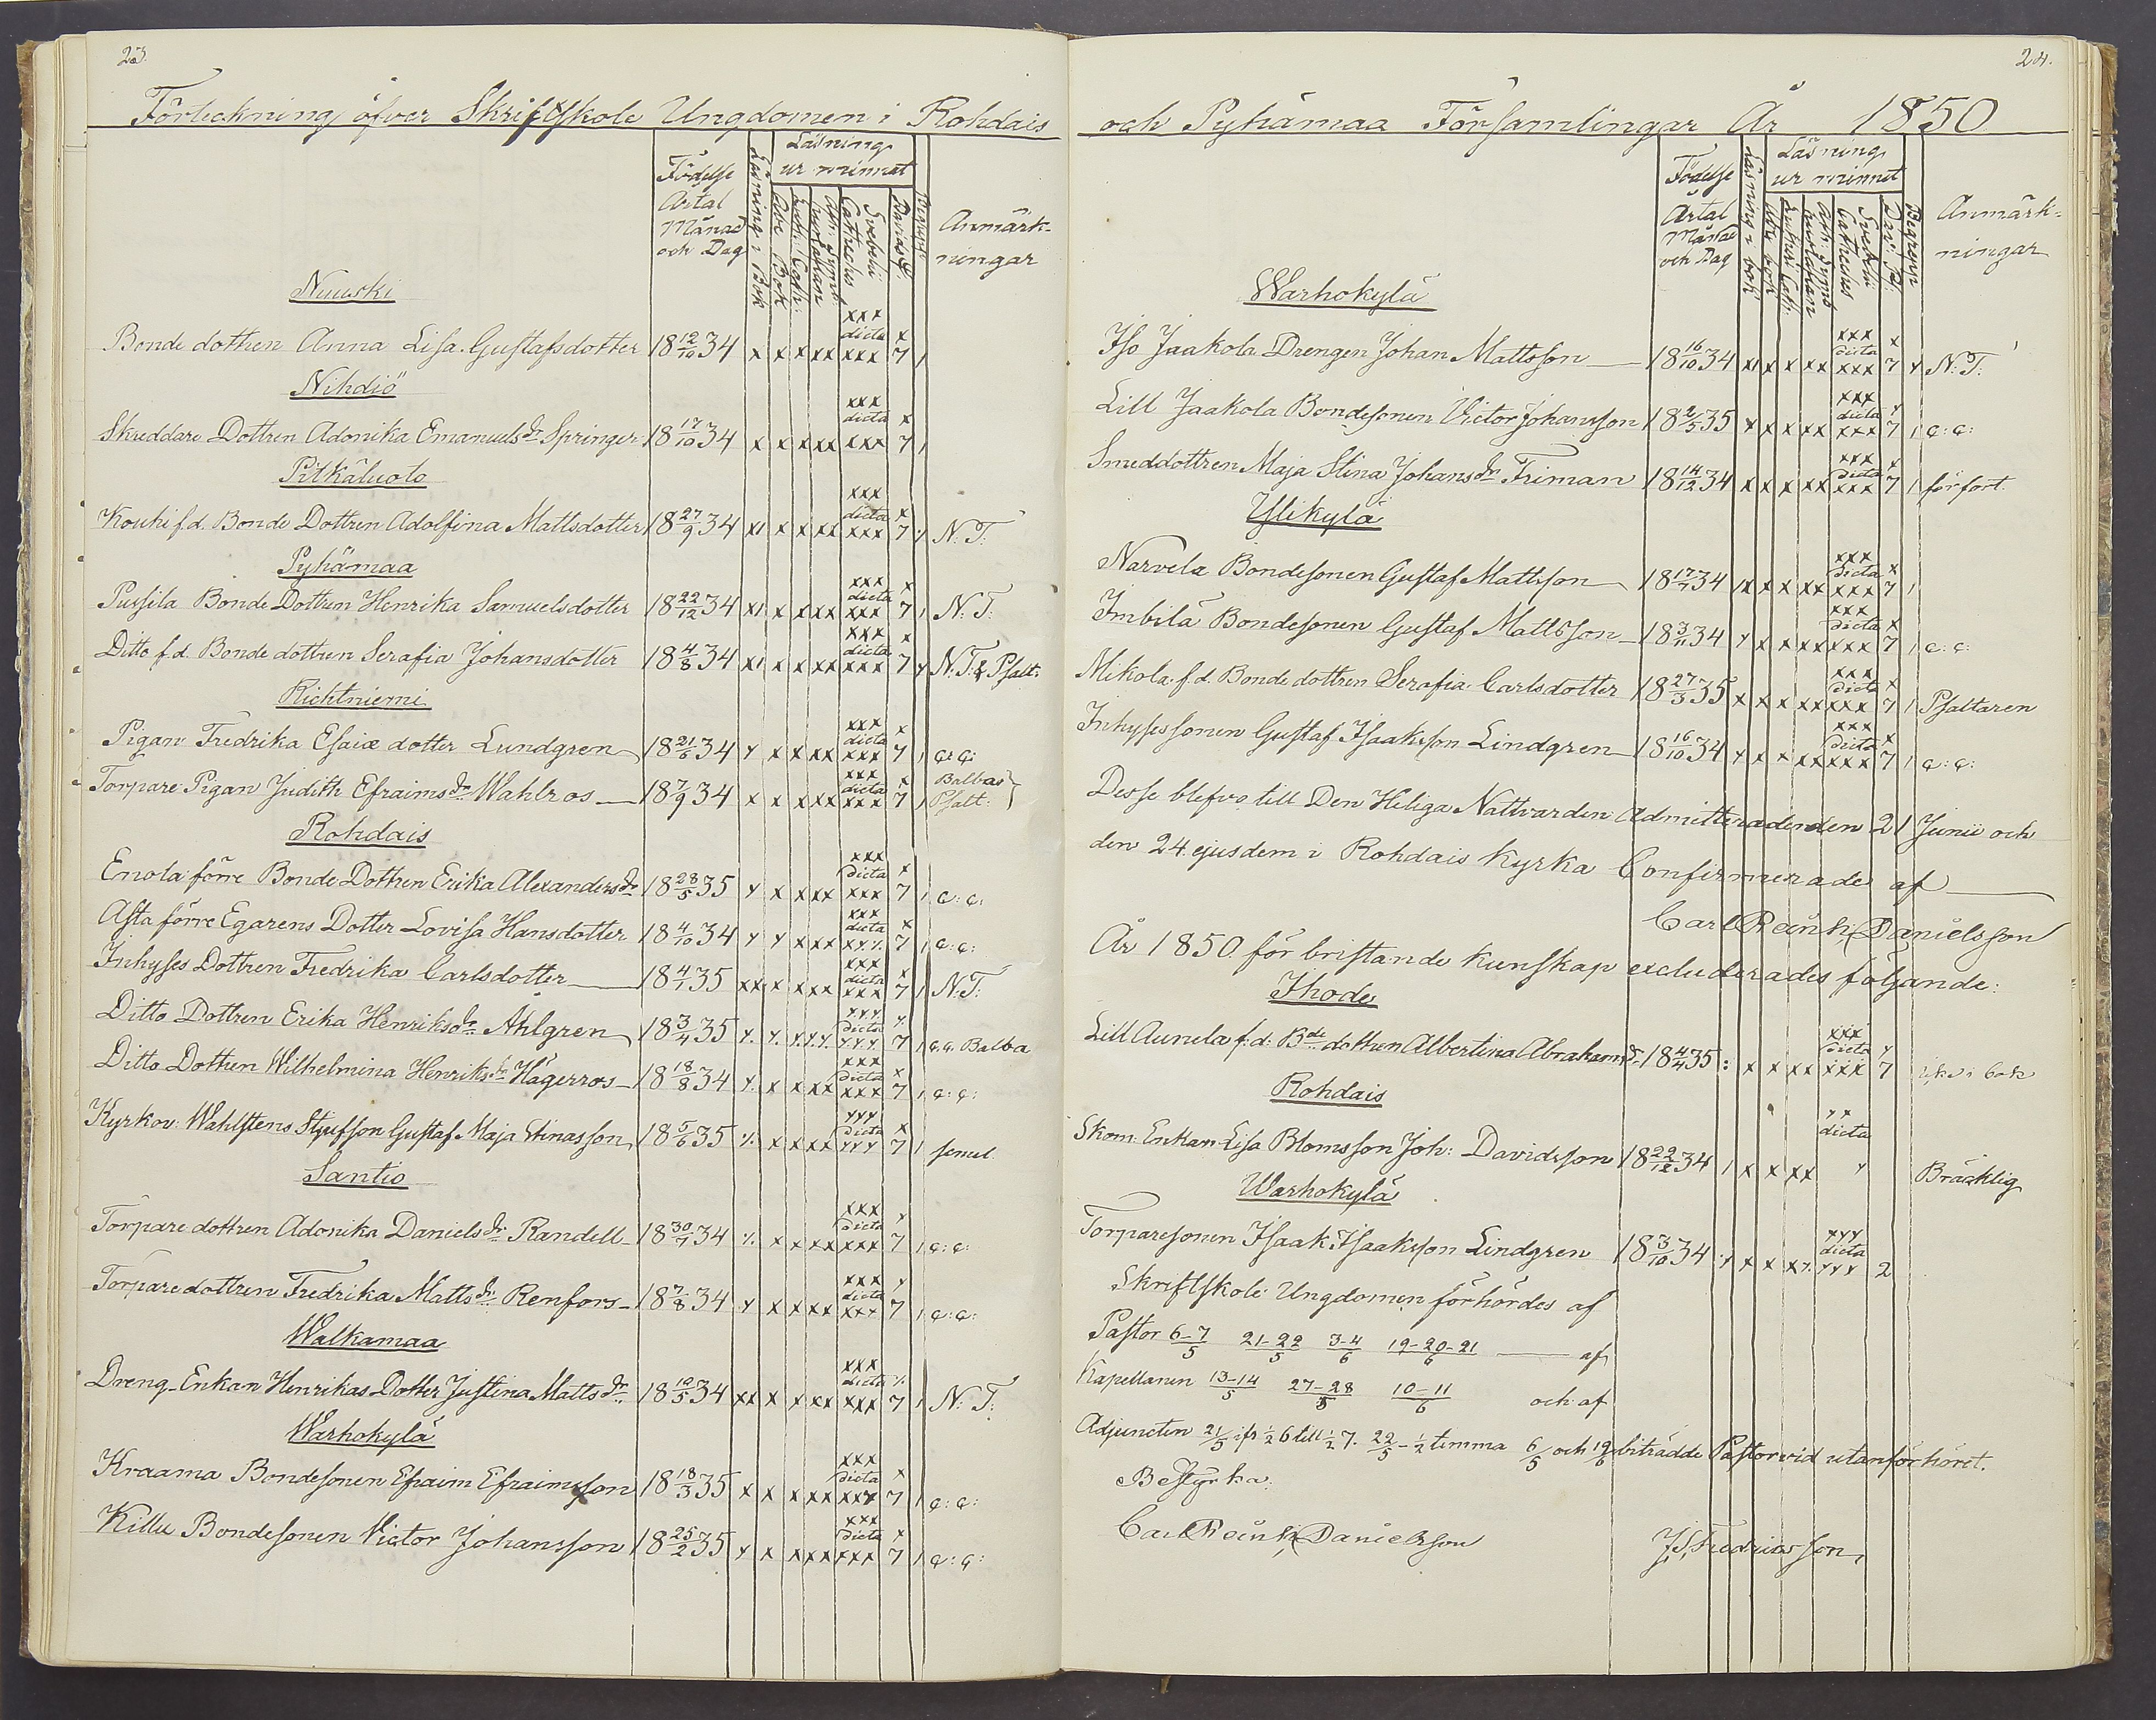 23.
Förteckning öfver Skriftskole Ungdomen i Rohdais
Födelse Årtal Månad och Dag
Läsning i Bok
Läsning ur minnet
Abc Bok
Luth: Cath:
Hustaflan
Ath: Symb:
Svebelii Catheches
Davids P.
Begrepp
Anmärkningar
Nuuski
Bonde dottren Anna Lisa Gustafsdotter 18 12/10 34 x x x xx xxx dicta xxx x 7 1
Nihdiö
Skreddare Dottren Adonika Emanuels dr Springer 18 17/10 34 x x x xx xxx dicta xxx x 7 1
Pitkäluoto
Kouki f.d. Bonde Dottren Adolfina Mattsdotter 18 27/9 34 x1 x x xx xxx dicta xxx x 7 y N.T.
Pyhämaa
Pussila Bonde Dottren Henrika Samuelsdotter 18 22/12 34 x1 x x xx xxx dicta xxx x 7 1 N:T:
Ditto f.d. Bonde dottren Serafia Johansdotter 18 4/8 34 x1 x x xx xxx dicta xxx x 7 y N.T. & Psalt:
Richtniemi
Pigan Fredrika Esaiæ dotter Lundgren 18 21/6 34 y x x xx xxx dicta xxx x 7 1 c: c:
Torpare Pigan Judith Efraims dr Wahlros 18 7/9 34 x x x xx xxx dicta xxx x 7 1 Balbas Psalt:
Rohdais
Enola förre Bonde Dottren Erika Alexanders dr 18 28/5 35 y x x xx xxx dicta xxx x 7 1 c: c:
Asta förre Egarens Dotter Lovisa Hansdotter 18 4/10 34 y y x xx xxx dicta xyy x 7 1 c: c:
Inhyses Dottren Fredrika Carlsdotter 18 4/1 35 xx x x xx xxx dicta xxx x 7 1 N:T:
Ditto Dottren Erika Henriks dr Ahlgren 18 3/4 35 y. y. y. y.y. yyy dicta yyy y. 7 1 c. c. Balba
Ditto Dottren Wilhelmina Henriks dr Hägerros 18 18/8 34 y. x x xx xxx dicta xxx x 7 1 c: c:
Kyrkov: Wahlstens Styfson Gustaf Maja Stinasson 18 5/6 35 y. x x xx yyy dicta yyy x 7 1 semel
Santio
Torpare dottren Adonika Daniels dr Randell 18 30/7 34 y. x x xx xxx dicta xxx y 7 1 c: c:
Torpare dottren Fredrika Matts dr Renfors 18 7/8 34 y x x xx xxx dicta xxx y 7 1 c: c:
Walkamaa
Dreng Enkan Henrikas Dotter Justina Matts dr 18 10/5 34 xx x x xx xxx dicta xxx y. 7 1 N. T:
Warhokylä
Kraama Bondesonen Efraim Efraimsson 18 18/3 35 x x x xx xxx dicta xxx x 7 1 c: c:
Killu Bondesonen Victor Johansson 18 25/2 35 y x x xx xxx dicta xxx x 7 1 c: c:
24.
och Pyhämaa Församlingar År 1850
Födelse Årtal Månad och Dag
Läsning i bok
Läsning ur minnet
Abc bok
Lutheri Cath:
Hustaflan
Ath: Symb
Svebelii Catheches
Dav: Ps:
Begrepp
Anmärkningar
Warhokylä
Iso Jaakola Drengen Johan Mattsson 18 16/10 34 x1 x x xx xxx dicta xxx x 7 y N:T:
Lill Jaakola Bondesonen Victor Johansson 18 2/5 35 x x x xx xxx dicta xxx y 7 1 c: c:
Smeddottren Maja Stina Johans dr Friman 18 14/12 34 x x x xx xxx dicta xxx x 7 1 för fort.
Ylikylä
Narvela Bondesonen Gustaf Mattsson 18 17/7 34 1x x x xx xxx dicta xxx x 7 1
Imbilä Bondesonen Gustaf Mattsson 18 3/11 34 y x x xx xxx dicta xxx x 7 1 c: c:
Mikola f.d. Bonde dottren Serafia Carlsdotter 18 27/3 35 x x x xx xxx dicta xxx x 7 1 Psaltaren
Inhyses sonen Gustaf Isaaksson Lindgren 18 16/10 34 y x x xx xxx dicta xxx x 7 1 c: c:
Desse blefvo till Den Heliga Nattvarden Admitterade den 21 Junii och
den 24 ejusdem i Rohdais Kyrka Confirmerade af
Carl Reinh. Danielsson
År 1850 för bristande kunskap excluderades följande:
Ihode
Lill Aunela f:d: Bde dottren Albertina Abrahams dr 18 4/4 35 : x x xx xxx dicta xxx y 7 i bok
Rohdais
Skom: Enkan Lisa Bloms son Joh: Davidsson 18 22/12 34 1 x x xx yx dicta y Bräcklig
Warhokylä
Torparesonen Isaak Isaaksson Lindgren 18 3/10 34 y x x xy. yyy dicta yyy 2
Skriftskole Ungdomen förhördes af
Pastor 6-7/5 21-22/5 3-4/6 19-20-21/6 af
Kapellanen 13-14/5 27-28/5 10-11/6 och af
Adjuncten 21/5 ifr ½ 6 till ½ 7. 22/5 - ½ timma 6/5 och 19/6 biträdde Pastor vid utanförhöret.
Bestyrka:
Carl Reinh. Danielsson J. S. Fredricsson